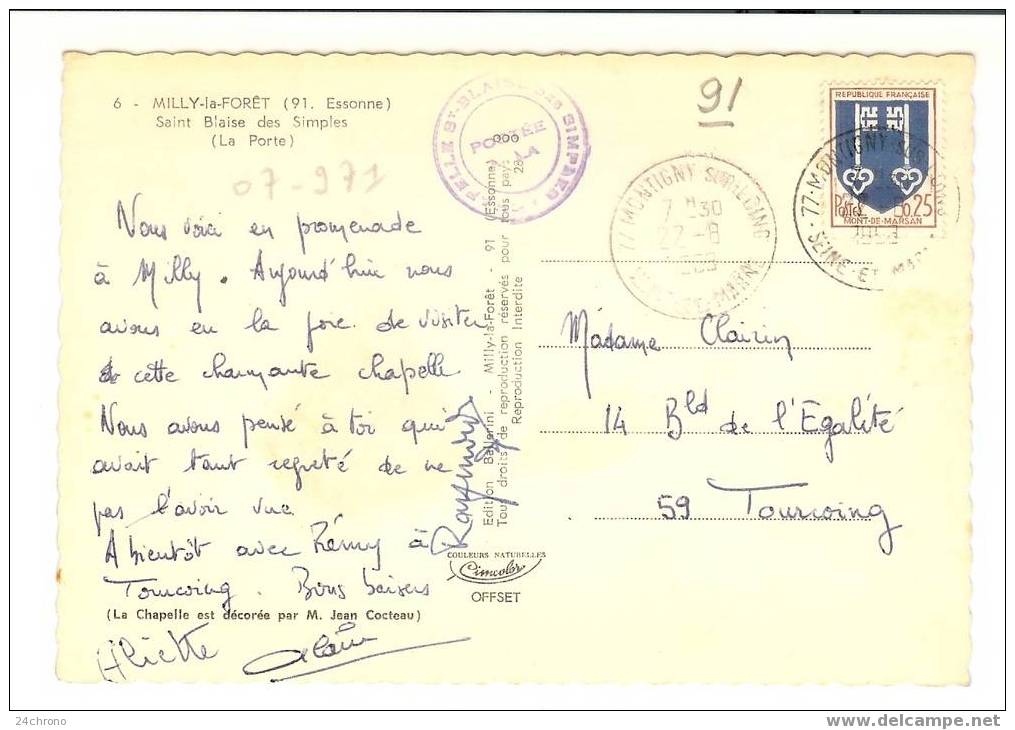 6 - MILLY-la-FORÊT (91. Essonne)
Saint Blaise des Simples
(La Porte)
07-971
Nous voici en promenade
à Milly. Aujourd'hui nous
avons eu la joie de visiter
cette charmante chapelle.
Nous avons pensé à toi qui
avait tant regreté de ne
pas l'avoir vue.
A bientôt avec Rémy à
Tourcoing. Bons baisers
(La Chapelle est décorée par M. Jean Cocteau)
Alain
Edition Ballerini - Milly-la-Forêt - 91 (Essonne)
Tous droits de reproduction réservés pour tous pays
Reproduction Interdite
COULEURS NATURELLES
Cimcolor
OFFSET
91
77 MONTIGNY SUR LOING
7H30
22-8
77-MONTIGNY SUR
SEINE-ET-MAR
REPUBLIQUE FRANÇAISE
Postes 0,25
MONT-DE-MARSAN
Madame Clairin
14 Bld de l'Egalité
59 Tourcoing
24chrono
www.delcampe.net